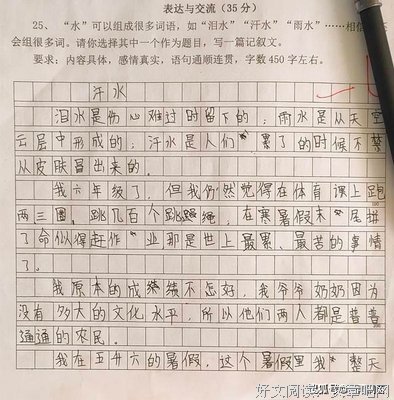 表达与交流（35分）
25、“水”可以组成很多词语，如“泪水”“汗水”“雨水”……相信
会组很多词。请你选择其中一个作为题目，写一篇记叙文。
要求：内容具体，感情真实，语句通顺连贯，字数450字左右。
汗水
泪水是伤心难过时留下的；雨水是从天空
云层中形成的；汗水是人们累了的时候不禁
从皮肤冒出来的。
我六年级了，但我仍然觉得在体育课上跑
两三圈、跳几百个跳绳，在寒暑假末尾拼
了命似得赶作业那是世上最累、最苦的事情
了。
我原本的成绩不怎好，我爷爷奶奶因为
没有多大的文化水平，所以他们两人都是普普
通通的农民。
我在五升六的暑假，这个暑假里我整天
好文阅读